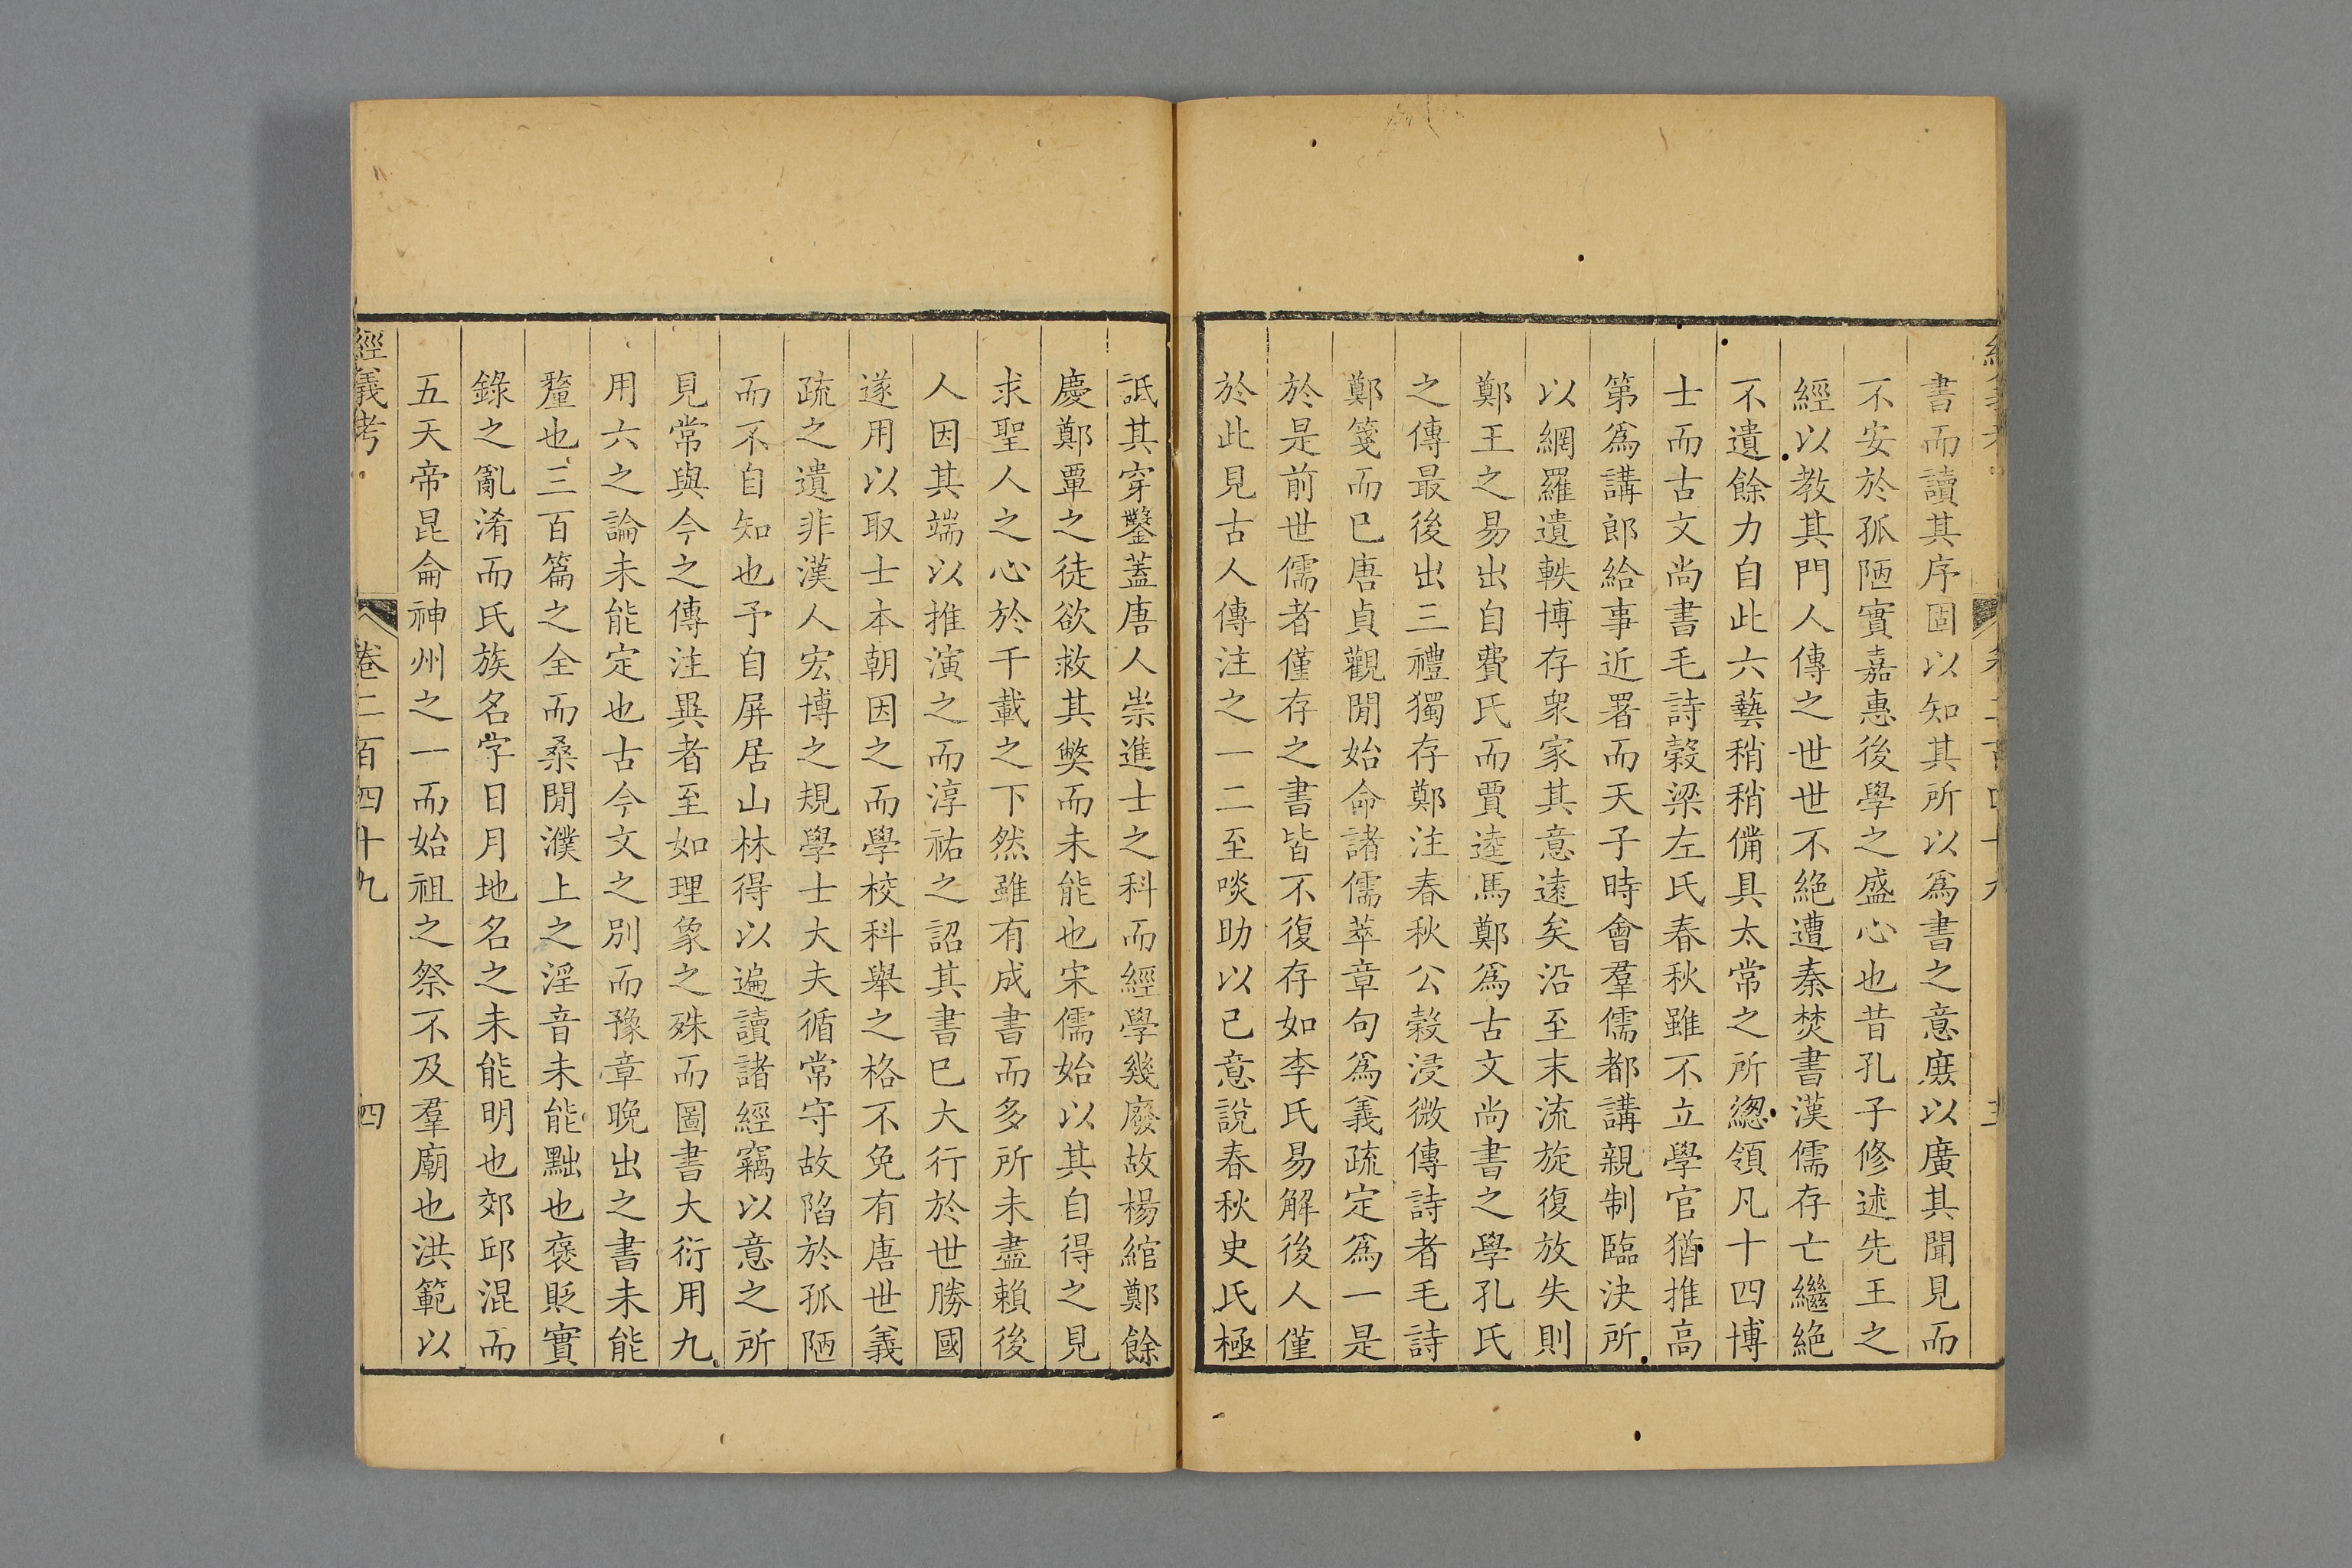 書而讀其序固以知其所以爲書之意庻以廣其聞見而
不安於孤陋實嘉惠後學之盛心也昔孔子修述先王之
經以教其門人傳之世世不絶遭秦焚書漢儒存亡繼絶
不遺餘力自此六藝稍稍備具太常之所緫領凡十四博
士而古文尚書毛詩榖梁左氏春秋雖不立學官猶推高
第爲講郎給事近署而天子時會羣儒都講親制臨決所
以網羅遺軼博存衆家其意遠矣沿至末流旋復放失則
鄭王之易出自費氏而賈逵馬鄭爲古文尚書之學孔氏
之傳最後出三禮獨存鄭注春秋公榖浸微傳詩者毛詩
鄭箋而已唐貞觀閒始命諸儒萃章句爲義疏定爲一是
於是前世儒者僅存之書皆不復存如李氏易解後人僅
於此見古人傳注之一二至啖助以己意說春秋史氏極
詆其穿鑿蓋唐人崇進士之科而經學幾廢故楊綰鄭餘
慶鄭覃之徒欲救其獘而未能也宋儒始以其自得之見
求聖人之心於千載之下然雖有成書而多所未盡賴後
人因其端以推演之而淳祐之詔其書已大行於世勝國
遂用以取士本朝因之而學校科舉之格不免有唐世義
疏之遺非漢人宏博之規學士大夫循常守故陷於孤陋
而不自知也予自屏居山林得以遍讀諸經竊以意之所
見常與今之傳注異者至如理象之殊而圖書大衍用九
用六之論未能定也古今文之別而豫章晩出之書未能
釐也三百篇之全而桑閒濮上之淫音未能黜也褒貶實
錄之亂淆而氏族名字日月地名之未能明也郊邱混而
五天帝昆侖神州之一而始祖之祭不及羣廟也洪範以
經義考
卷二百四十九
四